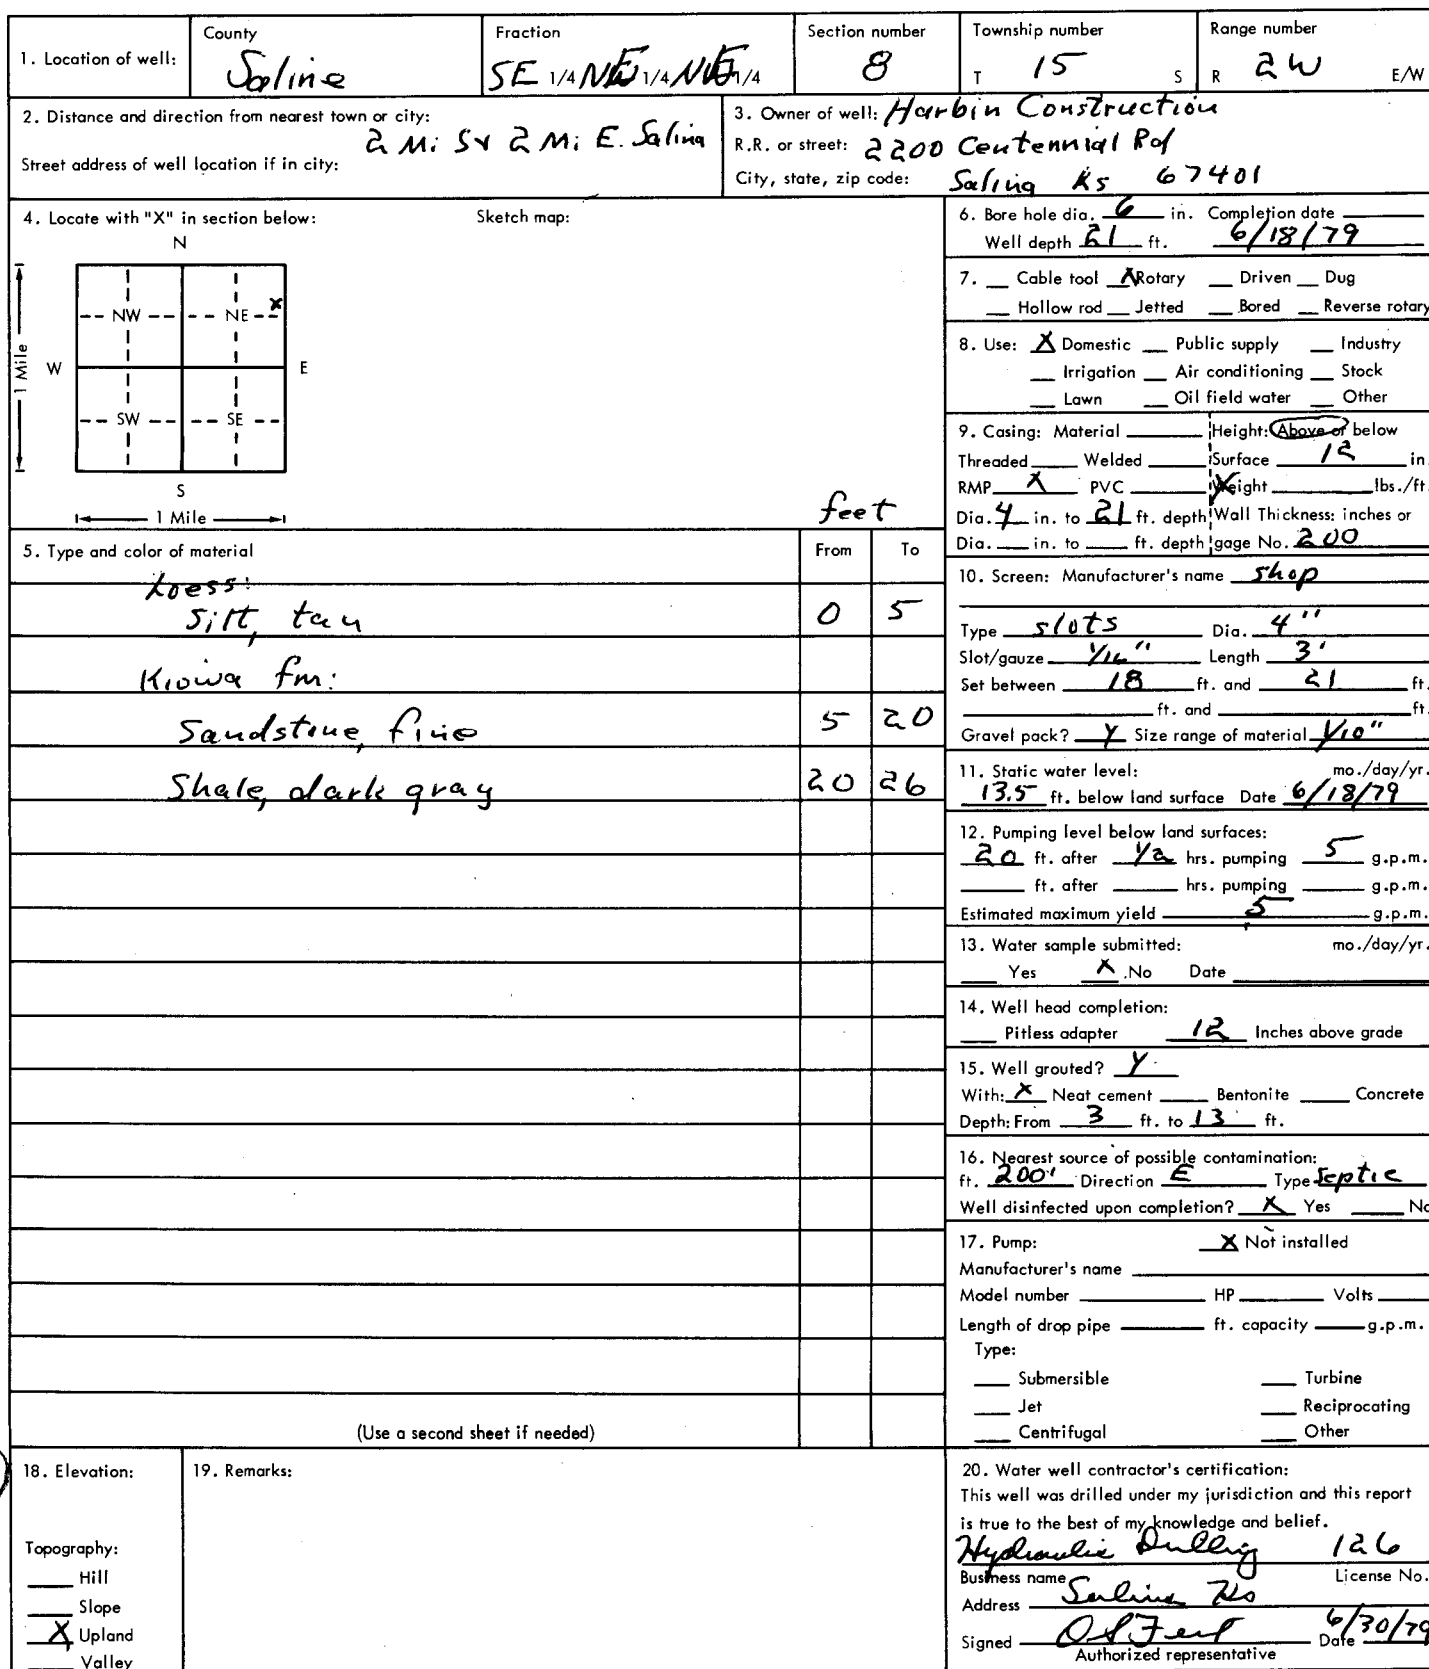 1. Location of well: County Saline Fraction SE 1/4 NE 1/4 NE 1/4 Section number 8 Township number T 15 S Range number R 2W E/W
2. Distance and direction from nearest town or city: 2 Mi S & 2 Mi E. Salina
Street address of well location if in city:
3. Owner of well: Harbin Construction
R.R. or street: 2200 Centennial Rd
City, state, zip code: Salina Ks 67401
4. Locate with "X" in section below: Sketch map:
N
NW NE X
W E
SW SE
S
1 Mile
1 Mile
feet
5. Type and color of material From To
Loess:
Silt, tan 0 5
Kiowa fm:
Sandstone, fine 5 20
Shale, dark gray 20 26
(Use a second sheet if needed)
6. Bore hole dia. 6 in. Completion date
Well depth 21 ft. 6/18/79
7. __ Cable tool X Rotary __ Driven __ Dug
__ Hollow rod __ Jetted __ Bored __ Reverse rotary
8. Use: X Domestic __ Public supply __ Industry
__ Irrigation __ Air conditioning __ Stock
__ Lawn __ Oil field water __ Other
9. Casing: Material ____ Height: Above or below
Threaded ____ Welded ____ Surface 12 in.
RMP X PVC ____ Weight ____ lbs./ft.
Dia. 4 in. to 21 ft. depth Wall Thickness: inches or
Dia. ___ in. to ___ ft. depth gage No. 200
10. Screen: Manufacturer's name shop
Type slots Dia. 4"
Slot/gauze 1/16" Length 3'
Set between 18 ft. and 21 ft.
____ ft. and ____ ft.
Gravel pack? Y Size range of material 1/10"
11. Static water level: mo./day/yr.
13.5 ft. below land surface Date 6/18/79
12. Pumping level below land surfaces:
20 ft. after 1/2 hrs. pumping 5 g.p.m.
____ ft. after ____ hrs. pumping ____ g.p.m.
Estimated maximum yield 5 g.p.m.
13. Water sample submitted: mo./day/yr.
__ Yes X No Date ____
14. Well head completion:
__ Pitless adapter 12 Inches above grade
15. Well grouted? Y
With: X Neat cement ____ Bentonite ____ Concrete
Depth: From 3 ft. to 13 ft.
16. Nearest source of possible contamination:
ft. 200' Direction E Type Septic
Well disinfected upon completion? X Yes ____ No
17. Pump: X Not installed
Manufacturer's name ____
Model number ____ HP ____ Volts ____
Length of drop pipe ____ ft. capacity ____ g.p.m.
Type:
__ Submersible __ Turbine
__ Jet __ Reciprocating
__ Centrifugal __ Other
18. Elevation:
Topography:
__ Hill
__ Slope
X Upland
__ Valley
19. Remarks:
20. Water well contractor's certification:
This well was drilled under my jurisdiction and this report
is true to the best of my knowledge and belief.
Hydraulic Drilling 126
Business name License No.
Address Salina Ks
Signed 6/30/79 Date
Authorized representative